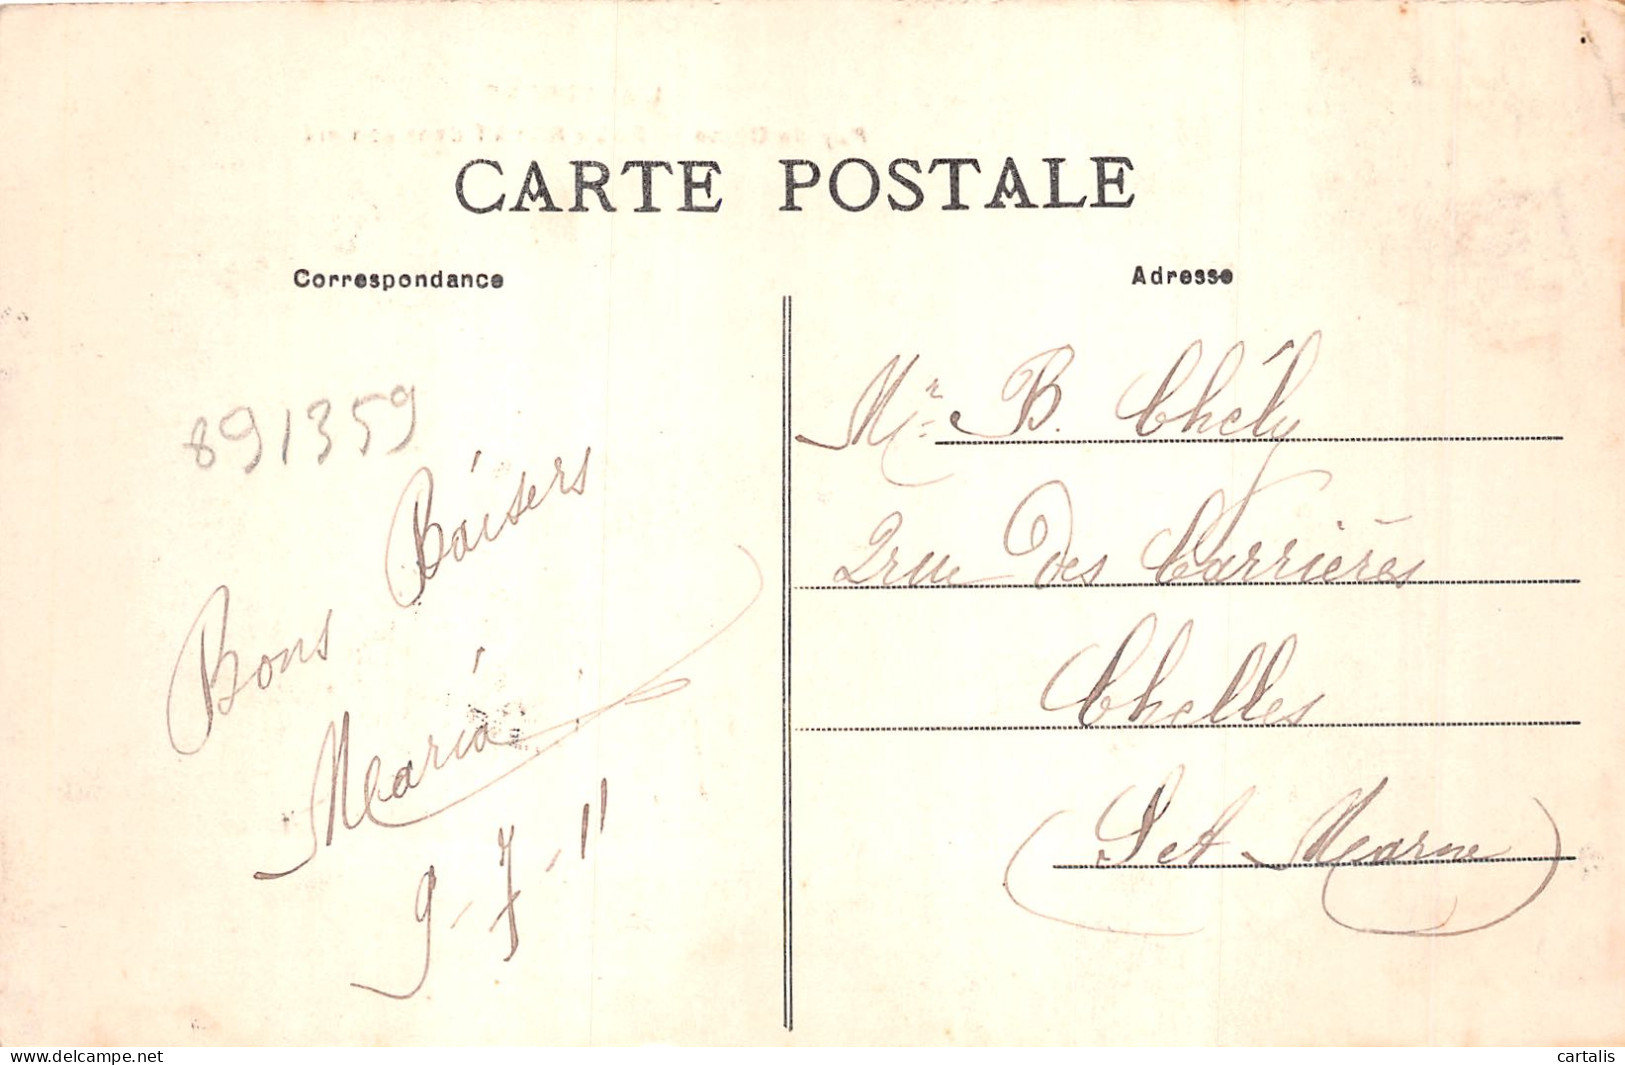 CARTE POSTALE
Correspondance
Adresse
891359
Bons Baisers
Maria
9-7-11
Mr B. Chély
2 rue des Carrières
Chelles
(S et Marne)
www.delcampe.net
cartalis